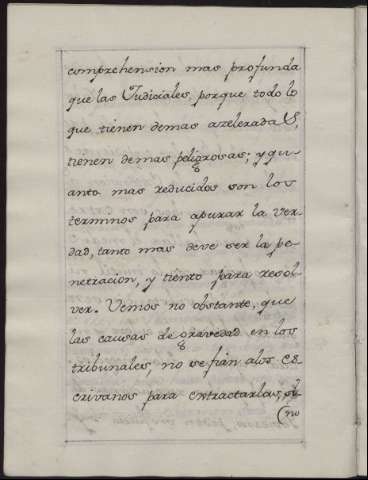 comprehension mas profunda
que las Judiciales, porque todo lo
que tienen demas azeleradas,
tienen demas peligrosas; y qu-
anto mas reducidos son los
terminos para apurar la ver
dad, tanto mas deve ser la pe
netracion, y tiento para resol
ver. Vemos no obstante, que
las causas de gravedad en los
tribunales, no se fian alos es
crivanos para extractarlas, si
(no